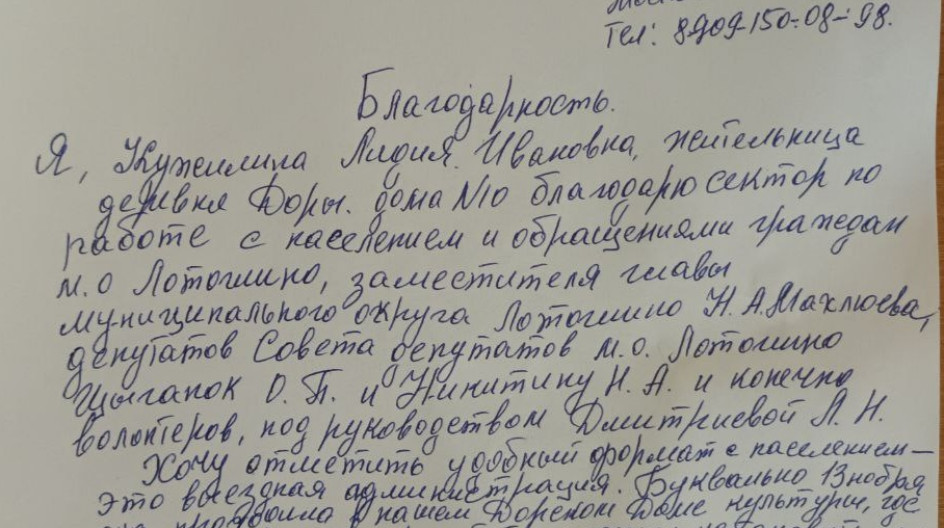 Тел: 8909-150-08-98.
Благодарность.
Я, Кужилина Лидия Ивановна, жительница
деревня Доры. дома №10 благодарю сектор по
работе с населением и обращениями граждан
м.о Лотошино, заместителя главы
муниципального округа Лотошино Н.А.Махлюева,
депутатов Совета депутатов м.о. Лотошино
Цыганок О.П. и Никитину Н.А. и конечно
волонтеров, под руководством Дмитриевой Л.Н.
Хочу отметить удобный формат с населением—
это выездная администрация. Буквально 13 ноября
она проходила в нашем Дорском Доме культуры, где